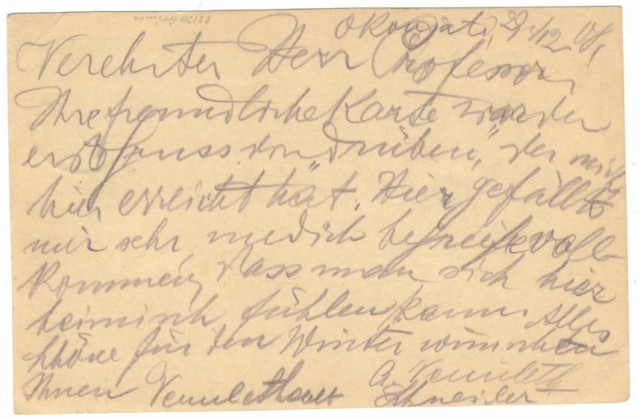 Okonjati, 29/12.08,
Verehrter Herr Professor,
Ihre freundliche Karte war der
erste Gruss von "drüben", der mich
hier erreicht hat. Hier gefällts
mir sehr, und ich begreife voll-
kommen, dass man sich hier
heimisch fühlen kann. Alles
schöne für den Winter wünschen
Ihnen
Schneider